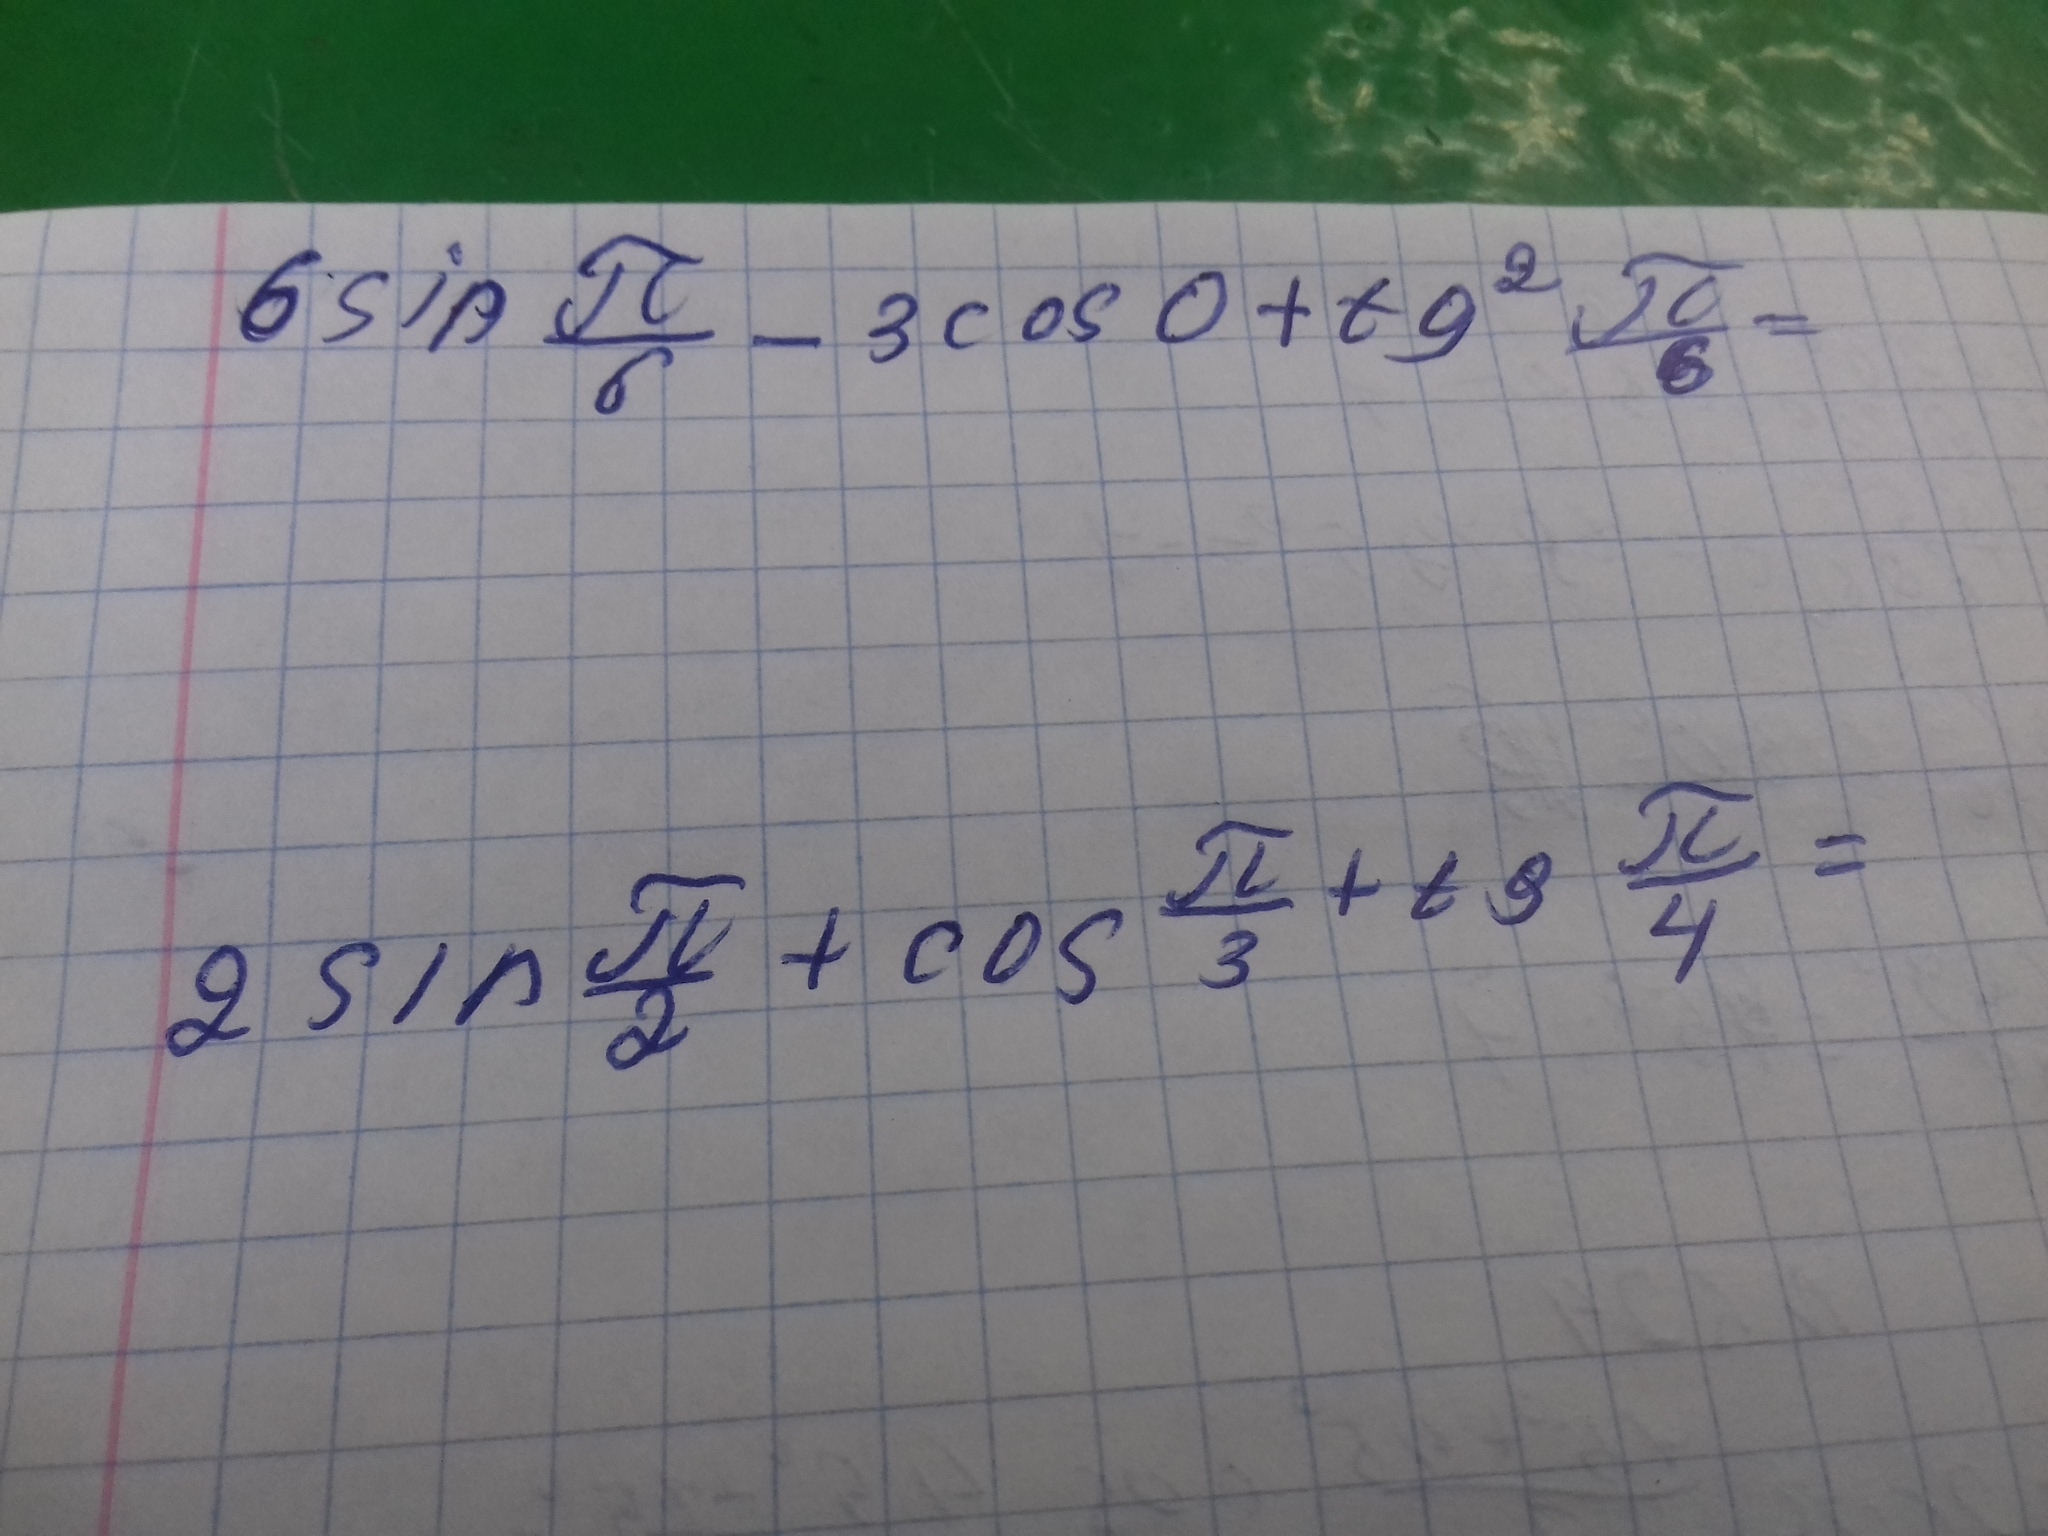 6 sin π/6 - 3 cos 0 + tg² π/6 =
2 sin π/2 + cos π/3 + tg π/4 =